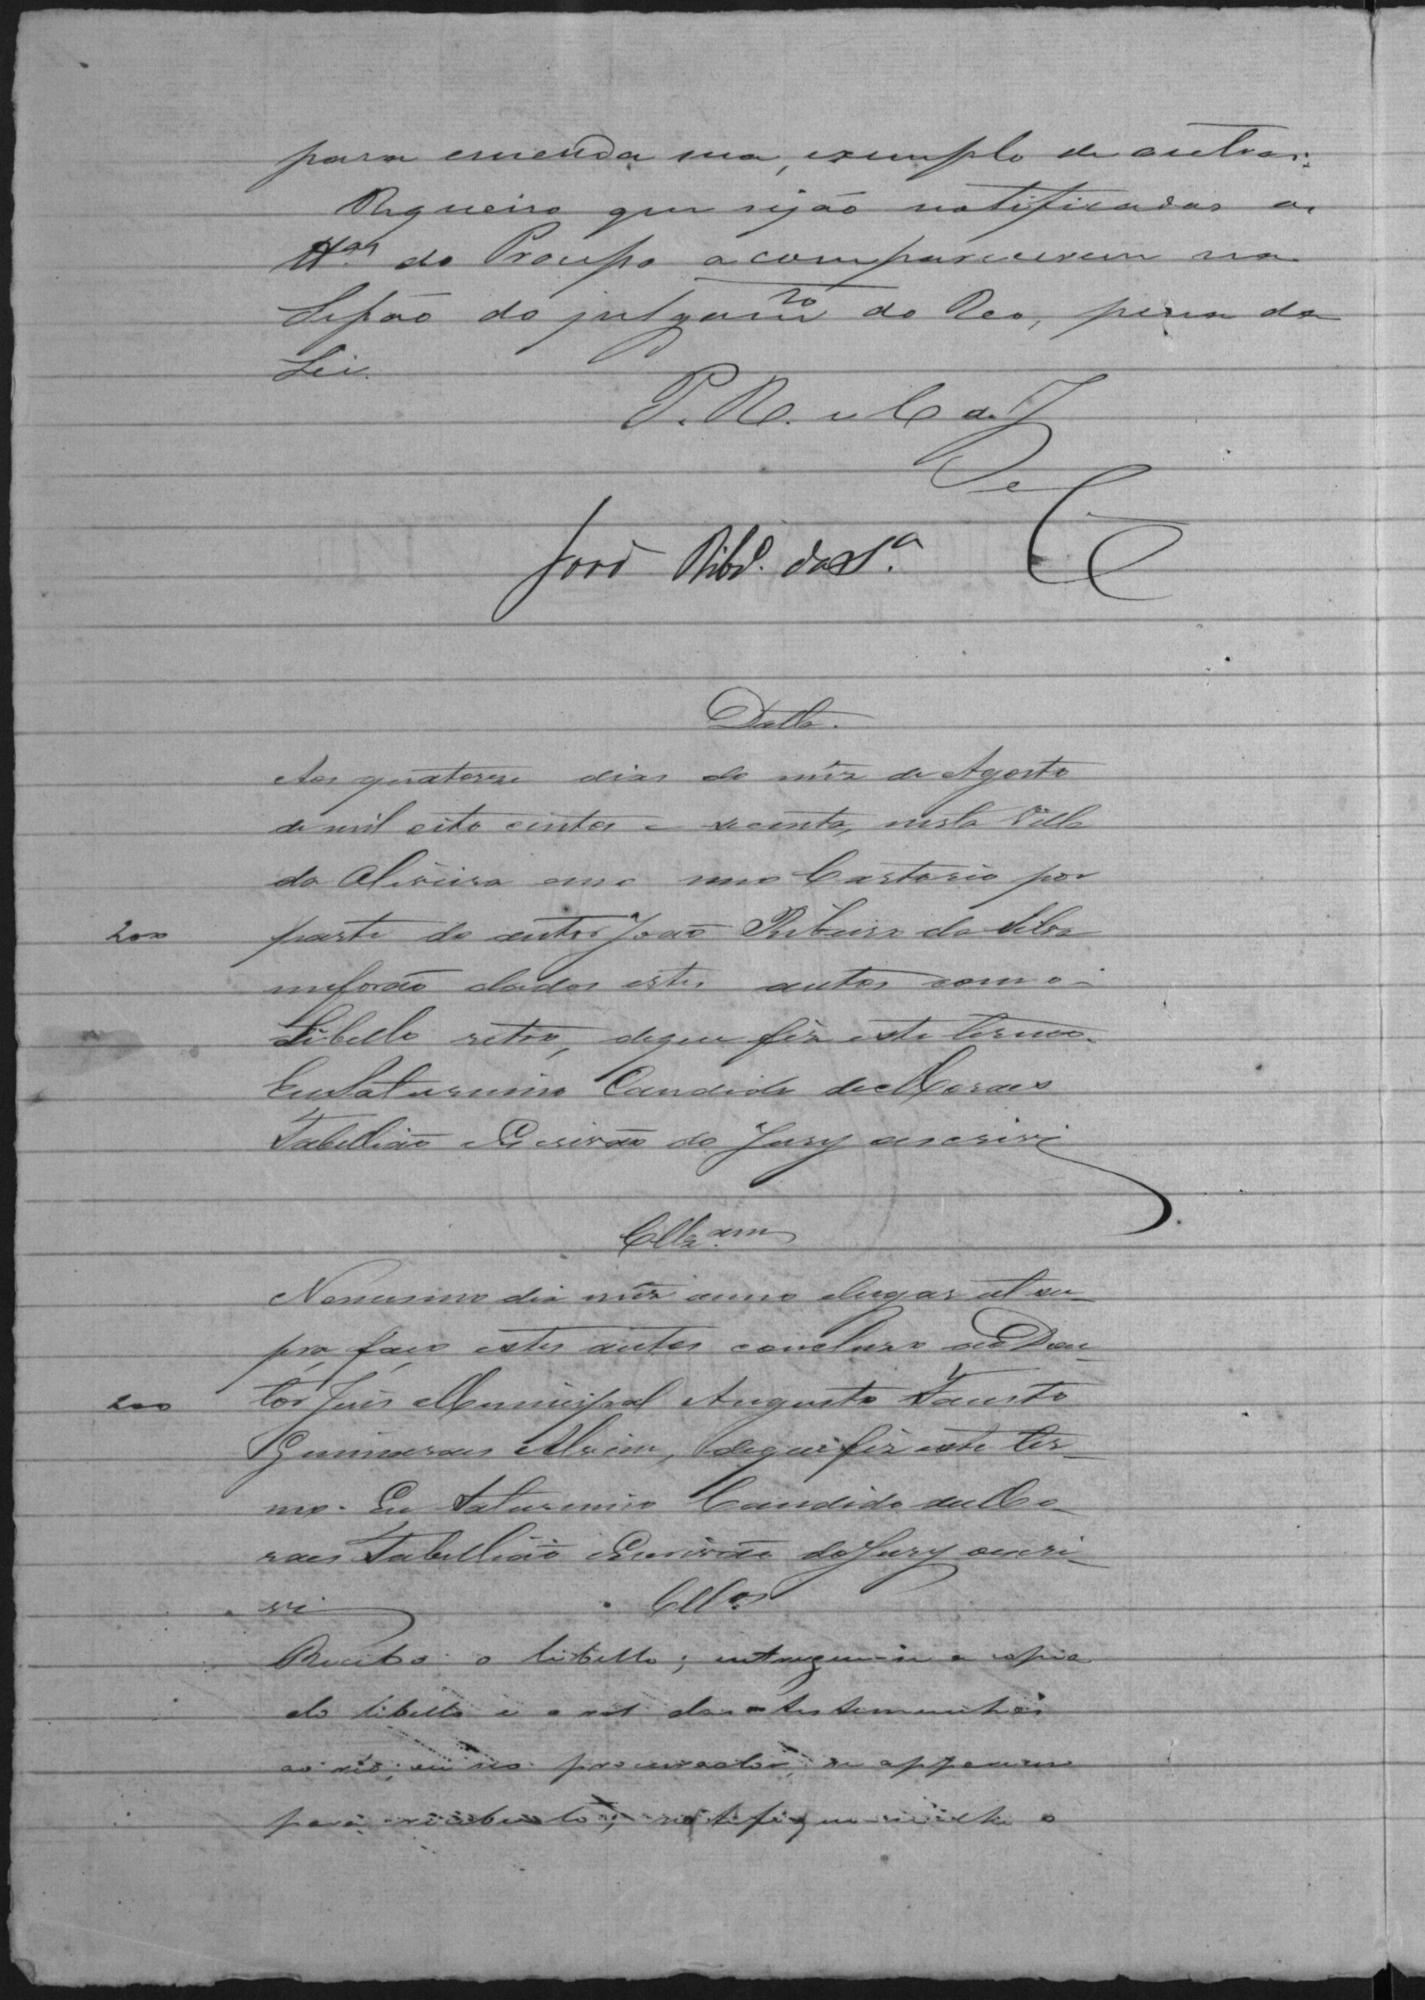 para emenda sua, exemplo de outros.
Requeiro que sejão notificadas as
tt.as do Processo a comparecerem na
Sessão do julgamto do Reo, pena da
Lei.
P. R. e C de J
De
João Ribr.o da S.a
Datta.
Aos quatorze dias do mêz de Agosto
de mil oito centos e secenta, nesta Villa
da Oliveira em meo Cartorio por
200 parte do autor João Ribeiro da Silva
me forão dados estes autos com o
Libello retro, de que fiz este termo.
Eu Saturnino Candido de Moraes
Tabellião e Escrivão do Jury o escrivi
Cllz.am
No mesmo dia mêz anno e lugar ut su-
pra, faço estes autos concluzo ao Dou-
200 tor Juis Municipal Augusto Fausto
Guimaraes Alvim, de que fiz este ter-
mo. Eu Saturnino Candido de Mo-
raes Tabellião e Escrivão do Jury o escri-
vi
Cll.os
Recebo o libello; entregue-se a copia
do libello e o rol das testemunhas
ao réo, ou seo procurador, se apparecer
para recebel-o; notifique-se-lhe o